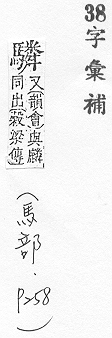 38字彙補
又韻會與麟
同出穀梁傳
（馬部．P258）